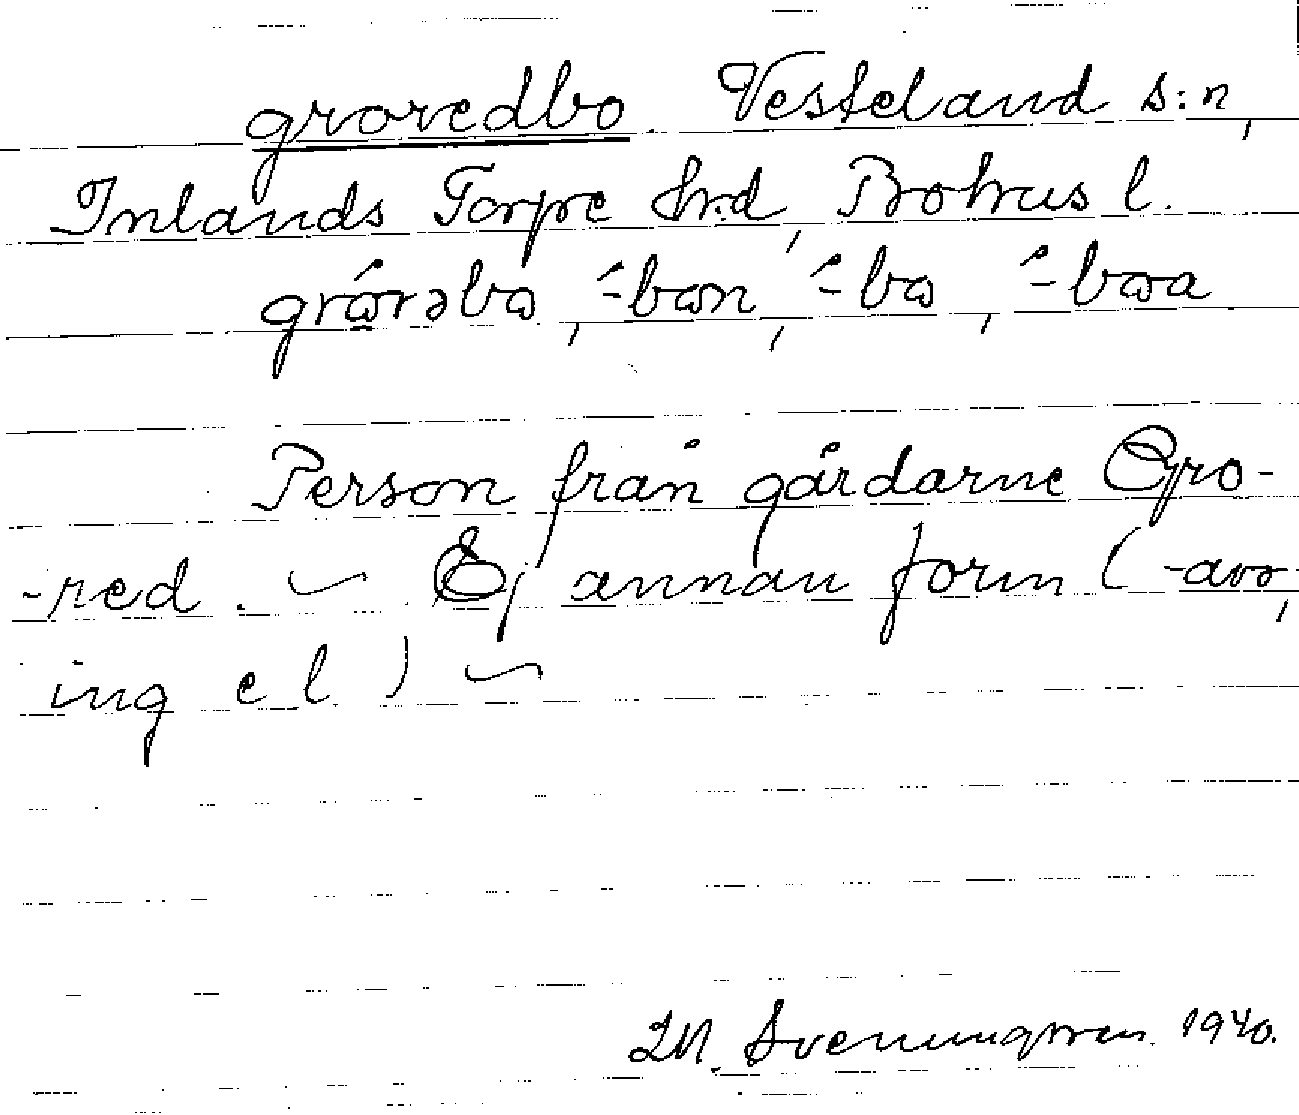 groredbo. Vesteland s:n,
Inlands Torpe hrd, Bohus l.
grώrəbω, ́-bωn, ́-bω, ́-bωa
Person från gårdarne Gro-
-red. ~ Ej annan form (-are,
ing el.) ~
M. Svenungsson. 1940.